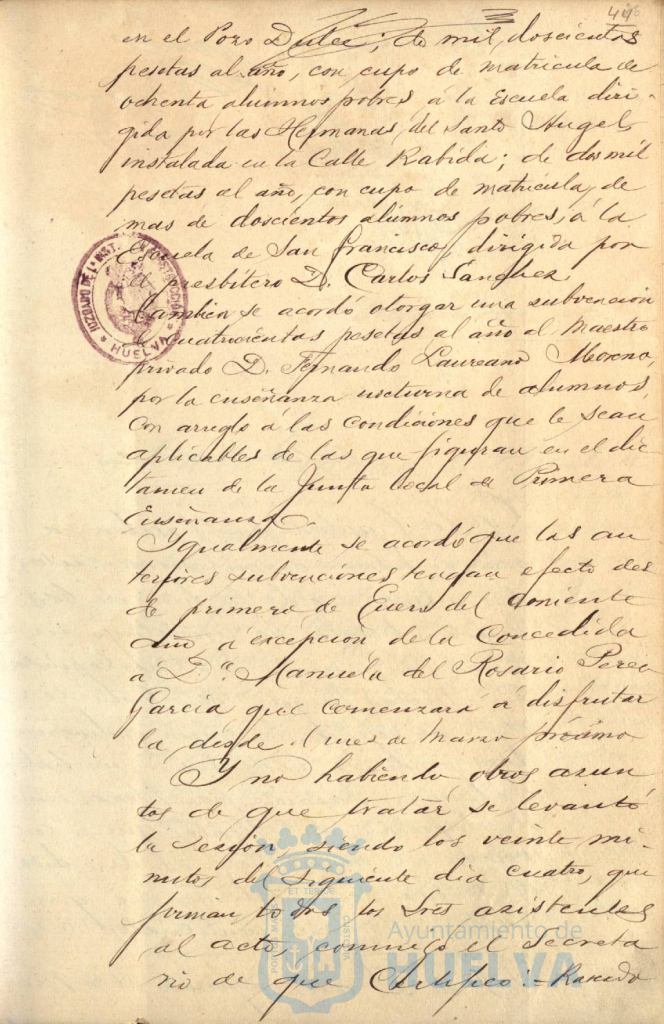 en el Pozo Dulce; de mil doscientas
pesetas al año, con cupo de matricula de
ochenta alumnos pobres á la Escuela diri-
gida por las Hermanas del Santo Angel,
instalada en la Calle Rabida; de dos mil
pesetas al año, con cupo de matricula, de
mas de doscientos alumnos pobres, á la
Escuela de San Francisco, dirigida por
el presbítero D. Carlos Sanchez.
Tambien se acordó otorgar una subvencion
de cuatrocientas pesetas al año al Maestro
privado D. Fernando Laureano Moreno,
por la enseñanza nocturna de alumnos,
con arreglo á las condiciones que le sean
aplicables de las que figuran en el dic
tamen de la Junta local de Primera
Enseñanza.
Ygualmente se acordó que las an
teriores subvenciones tengan efecto des
de primero de Enero del corriente
año, á excepcion de la Concedida
á Dª. Manuela del Rosario Perez
García que comenzará á disfrutar
la desde el mes de Marzo próximo
Y no habiendo otros asun
tos de que tratar se levantó
la sesión, siendo los veinte mi-
nutos del siguiente dia cuatro, que
firman todos los Sres asistentes
al acto, conmigo el Secreta
rio de que Certifico:-
HUELVA
Ayuntamiento de
HUELVA